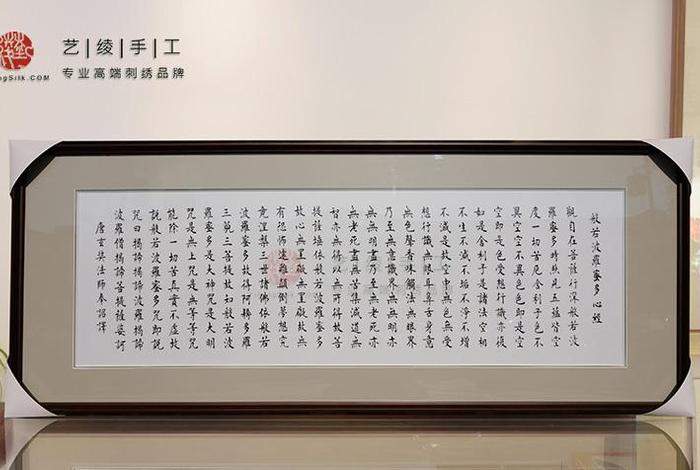 艺|绫|手|工
专业高端刺绣品牌
ngSilk.COM
般若波羅蜜多心經
觀自在菩薩行深般若波
羅蜜多時照見五蘊皆空
度一切苦厄舍利子色不
異空空不異色色即是空
空即是色受想行識亦復
如是舍利子是諸法空相
不生不滅不垢不淨不增
不減是故空中無色無受
想行識無眼耳鼻舌身意
無色聲香味觸法無眼界
乃至無意識界無無明亦
無無明盡乃至無老死亦
無老死盡無苦集滅道無
智亦無得以無所得故菩
提薩埵依般若波羅蜜多
故心無罣礙無罣礙故無
有恐怖遠離顛倒夢想究
竟涅槃三世諸佛依般若
波羅蜜多故得阿耨多羅
三藐三菩提故知般若波
羅蜜多是大神咒是大明
咒是無上咒是無等等咒
能除一切苦真實不虛故
說般若波羅蜜多咒即說
咒曰揭諦揭諦波羅揭諦
波羅僧揭諦菩提薩婆訶
唐玄奘法師奉詔譯